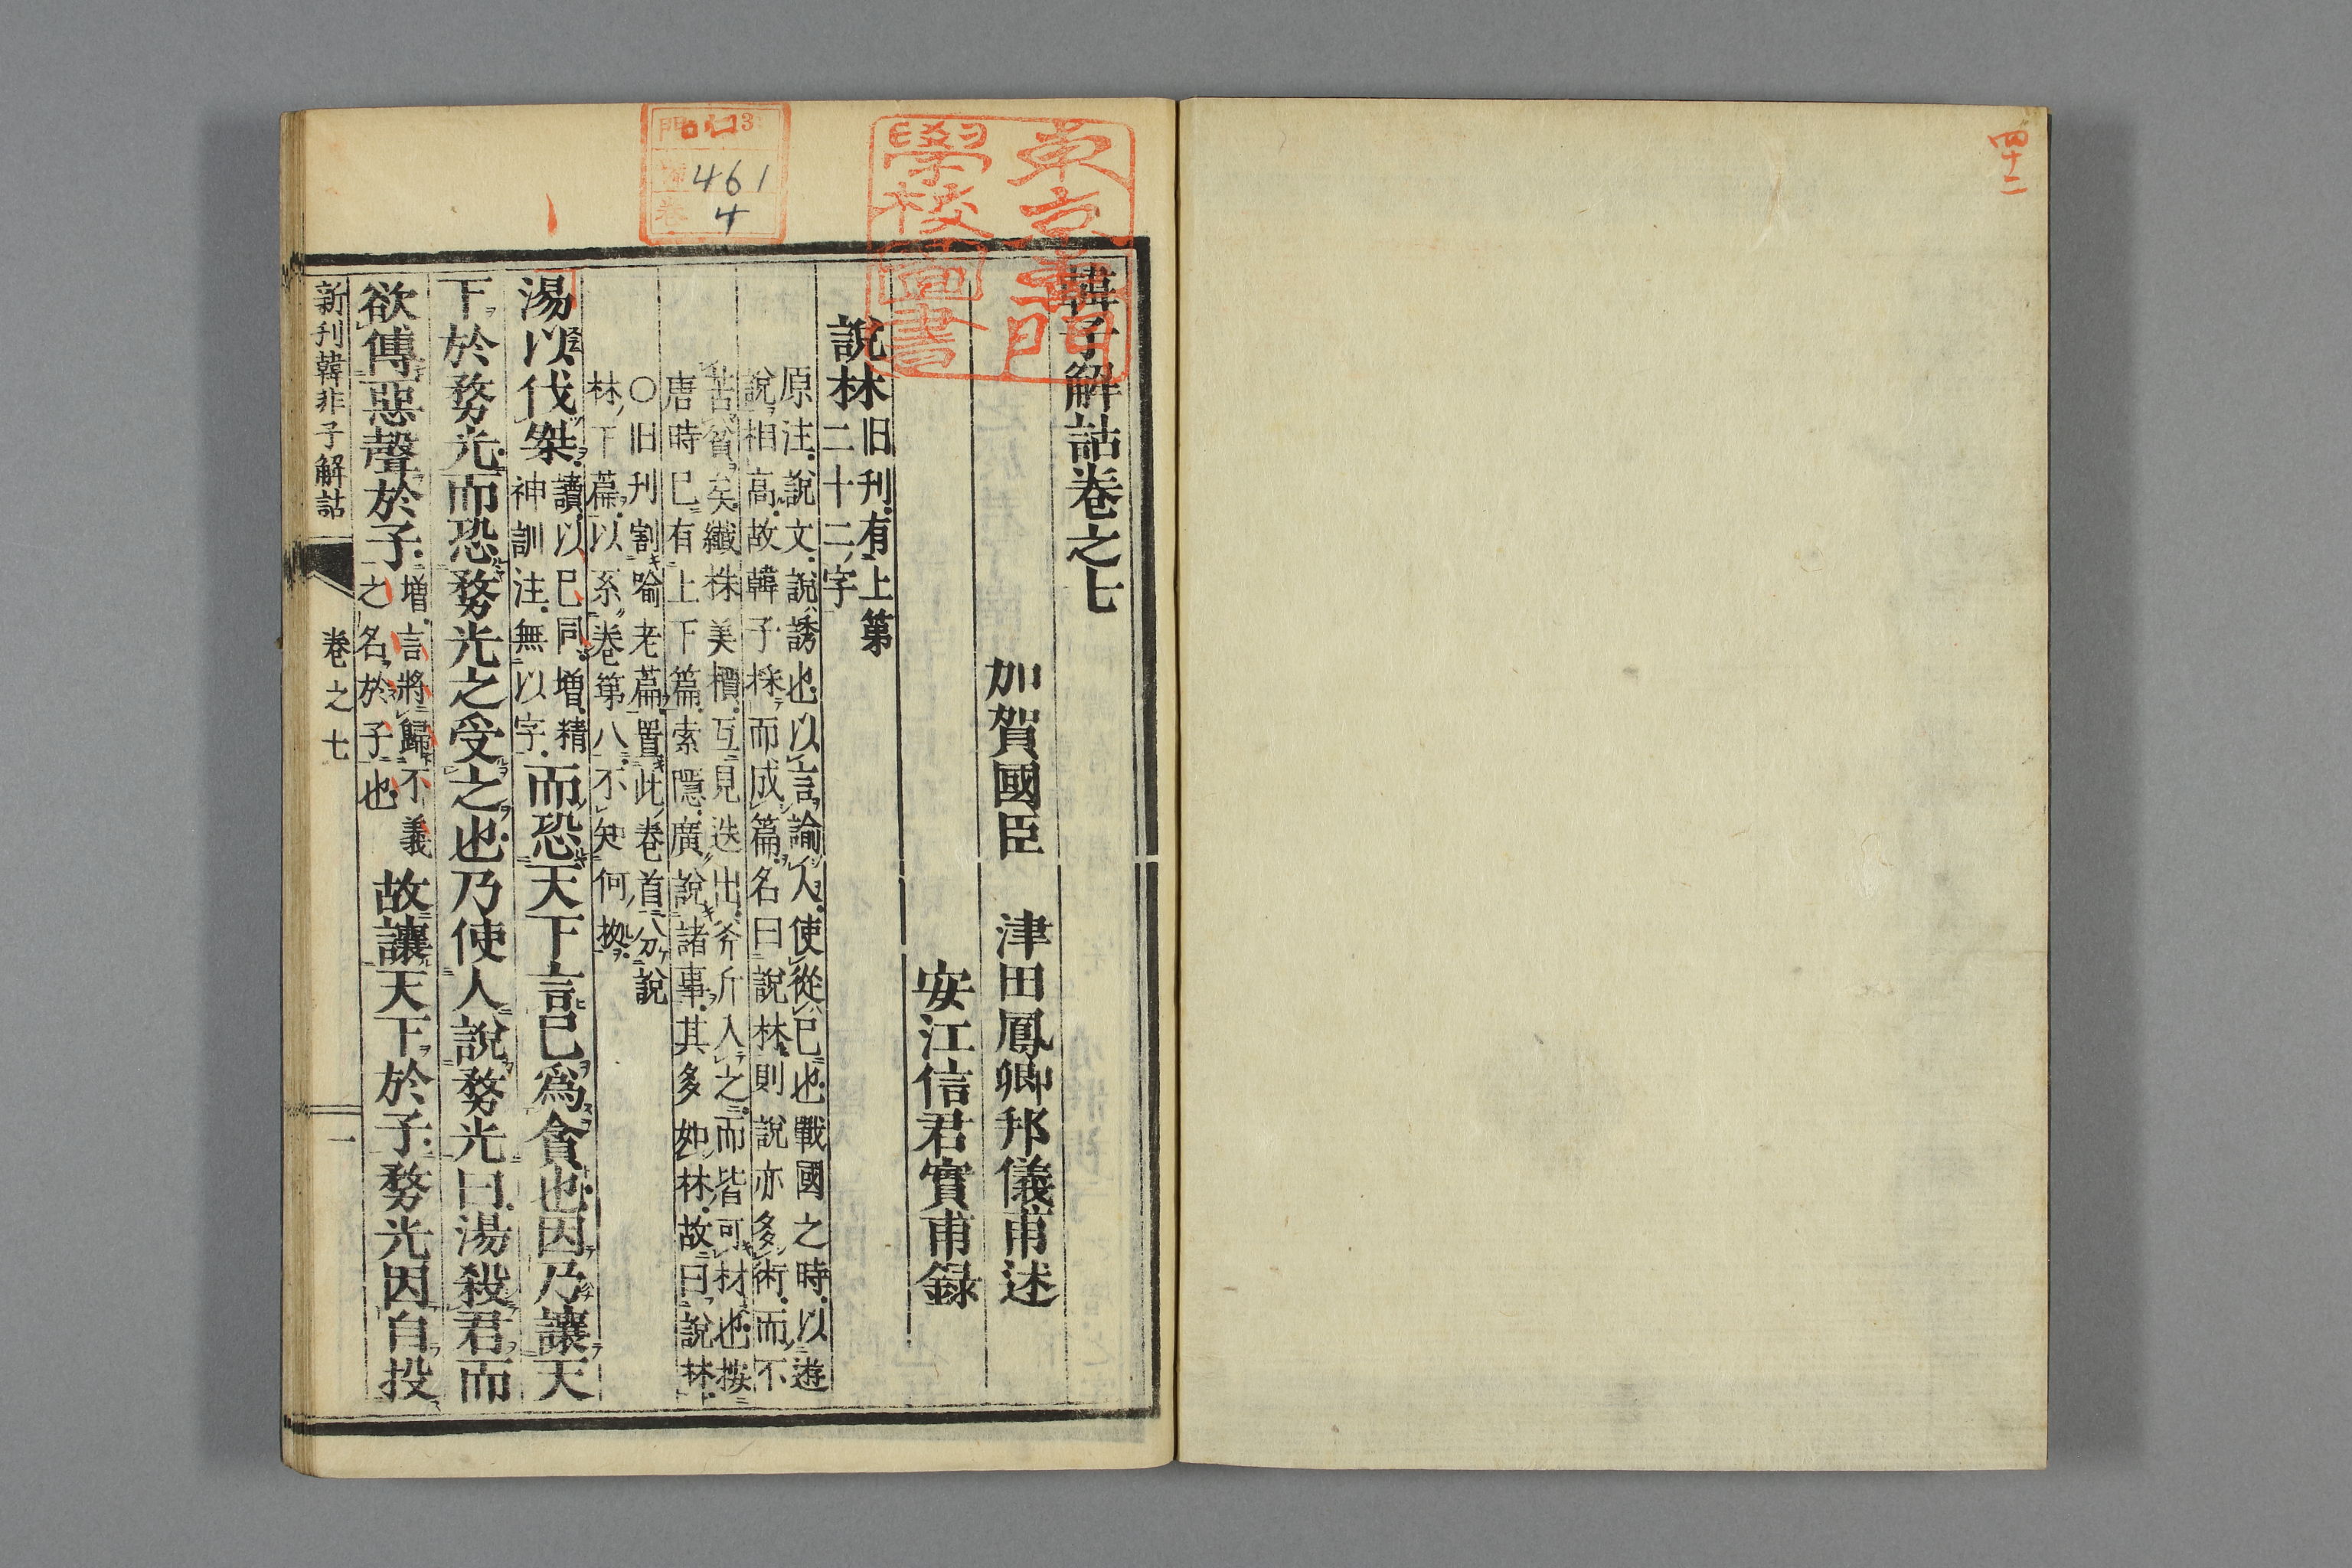 四十二
東京專門
學校圖書
461
4
韓子解詁卷之七
加賀國臣　津田鳳卿邦儀甫述
安江信君實甫録
說林
旧刊有上第
二十二字
原注說文說誘也以言諭人使從己也戰國之時以遊
說相高故韓子採而成篇名曰說林則說亦多術而不
唐時已有上下篇索隱廣說諸事其多如林故曰說林
〇旧刊割喻老篇置此卷首分說
林下篇以系卷第八不知何拠
湯以伐桀
讀以已同增精
神訓注無以字
而恐天下言己爲貪也因乃讓天
下於務光而恐務光之受之也乃使人說務光曰湯殺君而
欲傳惡聲於子
增言將歸不義
之名於子也
故讓天下於子務光因自投
新刊韓非子解詁
卷之七
一